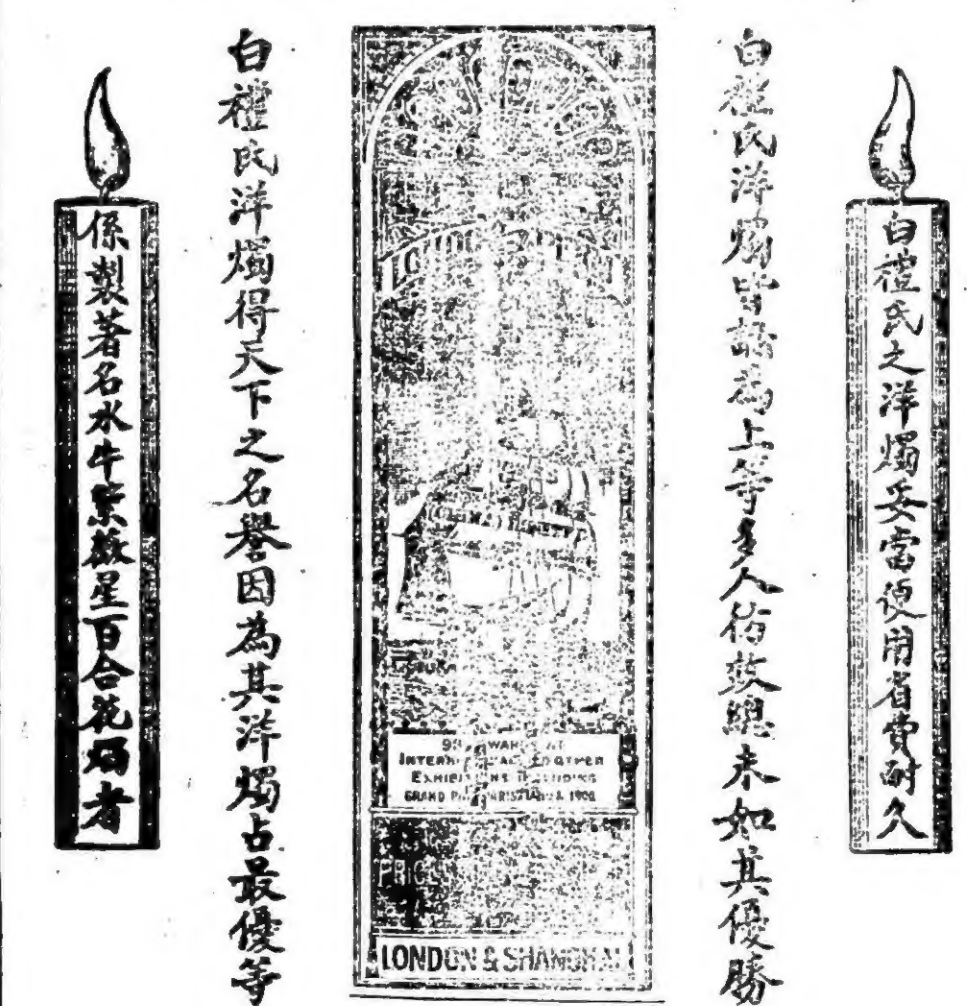 白禮氏之洋燭妥當便用省費耐久
白禮氏洋燭皆論為上等多人仿效總未如其優勝
LONDON
99 AWARDS AT
INTERNATIONAL AND OTHER
EXHIBITIONS INCLUDING
GRAND PRIX PARIS 1900
PRICE
LONDON & SHANGHAI
白禮氏洋燭得天下之名譽因為其洋燭占最優等
係製著名水牛紫薇星百合花燭者